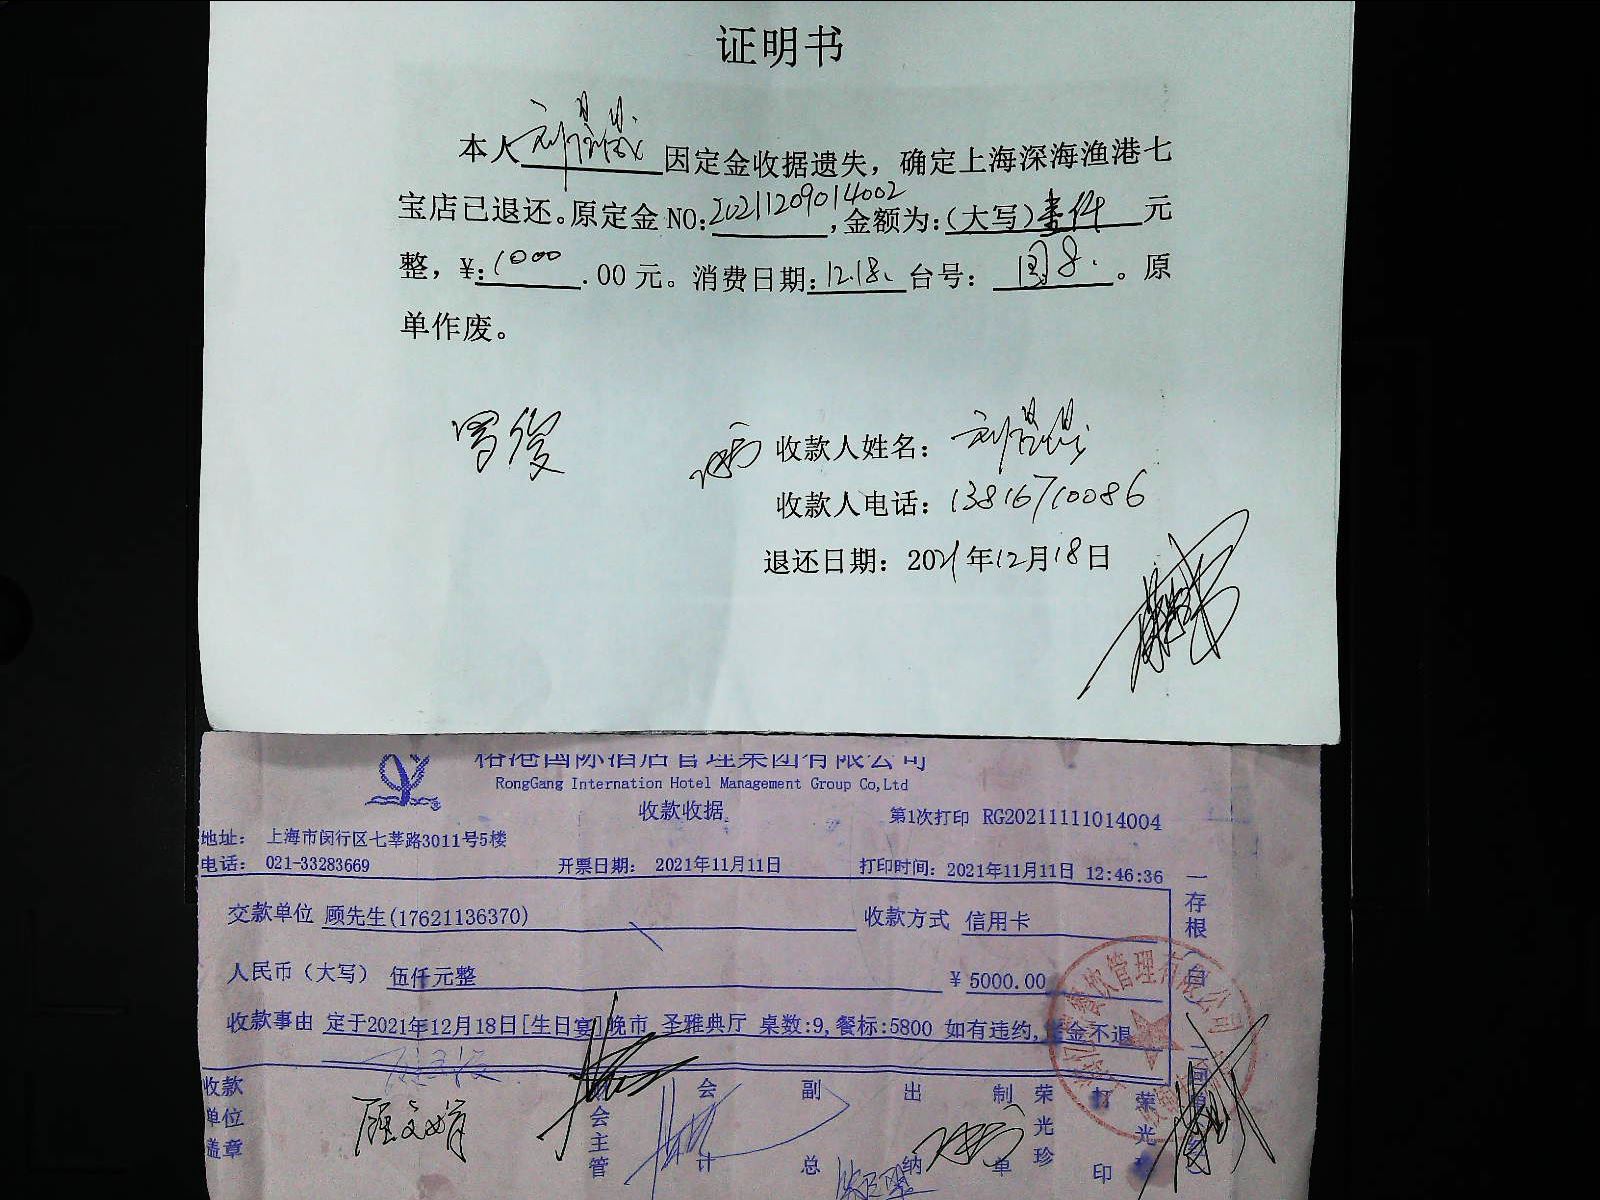 证明书
本人 因定金收据遗失，确定上海深海渔港七
宝店已退还。原定金 NO: 20211209014002 ，金额为:（大写）壹仟 元
整，¥: 1000 .00 元。消费日期: 12.18. 台号： 。原
单作废。
收款人姓名：
收款人电话：13816710086
退还日期：2021年12月18日
榕港国际酒店管理集团有限公司
RongGang Internation Hotel Management Group Co,Ltd
收款收据
第1次打印 RG20211111014004
地址： 上海市闵行区七莘路3011号5楼
电话： 021-33283669 开票日期： 2021年11月11日 打印时间：2021年11月11日 12:46:36
交款单位 顾先生(17621136370) 收款方式 信用卡
人民币（大写） 伍仟元整 ¥ 5000.00
收款事由 定于2021年12月18日[生日宴]晚市 圣雅典厅 桌数:9,餐标:5800 如有违约,定金不退
收款单位盖章
会主管
会计
副总
出纳
制单
荣光珍
打印
荣光
一存根
餐饮管理有限公司